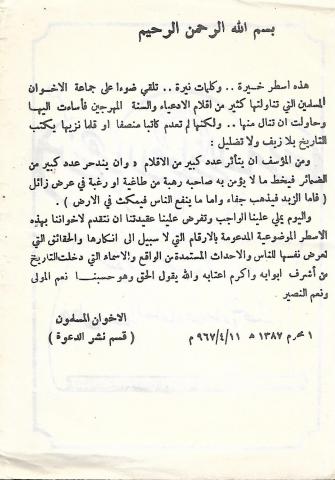 بسم الله الرحمن الرحيم
هذه اسطر خيرة .. وكلمات نيرة .. تلقي ضوءا على جماعة الاخوان
المسلمين التي تناولتها كثير من اقلام الادعياء والسنة المهرجين فأساءت اليها
وحاولت ان تنال منها .. ولكنها لم تعدم كاتبا منصفا او قلما نزيها يكتب
التاريخ بلا زيف ولا تضليل :
ومن المؤسف ان يتأثر عدد كبير من الاقلام « وان يندحر عدد كبير من
الضمائر فيخط ما لا يؤمن به صاحبه رهبة من طاغية او رغبة في عرض زائل
( فاما الزبد فيذهب جفاء واما ما ينفع الناس فيمكث في الارض )
واليوم يلي علينا الواجب وتفرض علينا عقيدتنا ان نتقدم لاخواننا بهذه
الاسطر الموضوعية المدعومة بالارقام التي لا سبيل الى انكارها والحقائق التي
تعرض نفسها للناس والاحداث المستمدة من الواقع والامجاد التي دخلت التاريخ
من أشرف ابوابه واكرم اعتابه والله يقول الحق وهو حسبنا نعم المولى
ونعم النصير
الاخوان المسلمون
١ محرم ١٣٨٧ هـ ٩٦٧/٤/١١ م ( قسم نشر الدعوة )